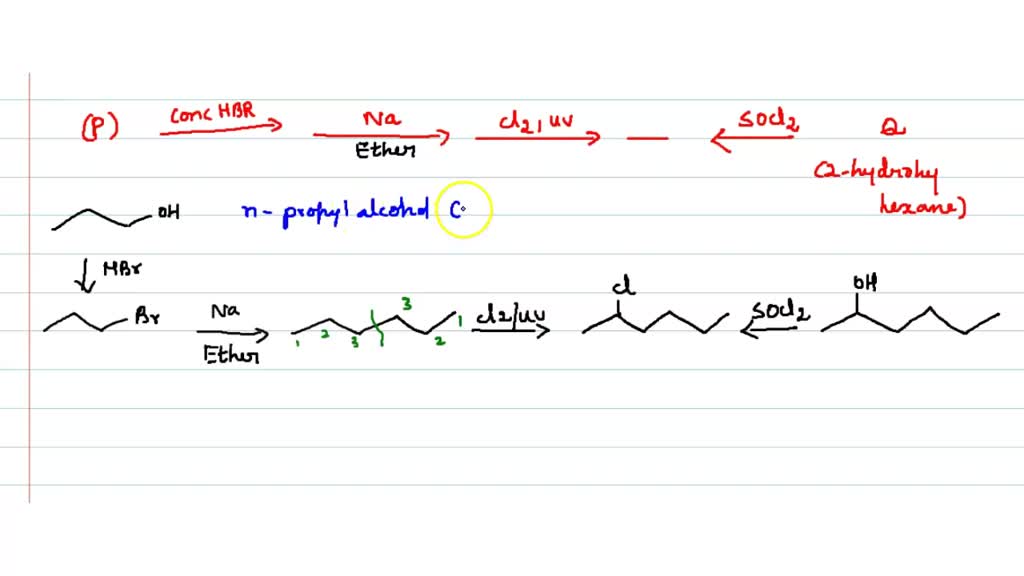 (P) conc HBR Na Ether Cl2, UV SOCl2 Q
(2-hydrohy
hexane)
OH n- propyl alcohol C
HBr
Br Na Ether 1 2 3 3 2 1 Cl2/UV Cl SOCl2 OH